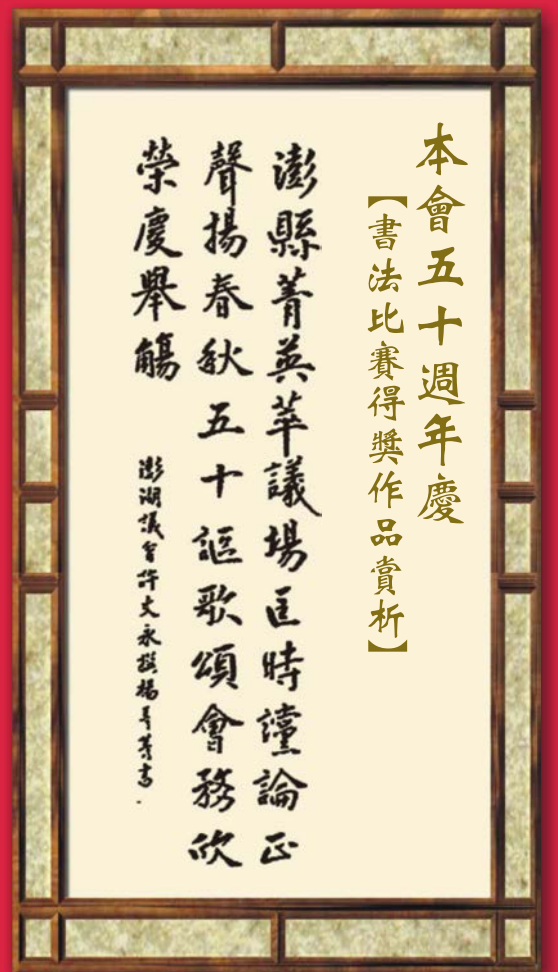 本會五十週年慶
【書法比賽得獎作品賞析】
澎縣菁英萃議場匡時讜論正
聲揚春秋五十謳歌頌會務欣
榮慶舉觴
澎湖議會許文永撰楊